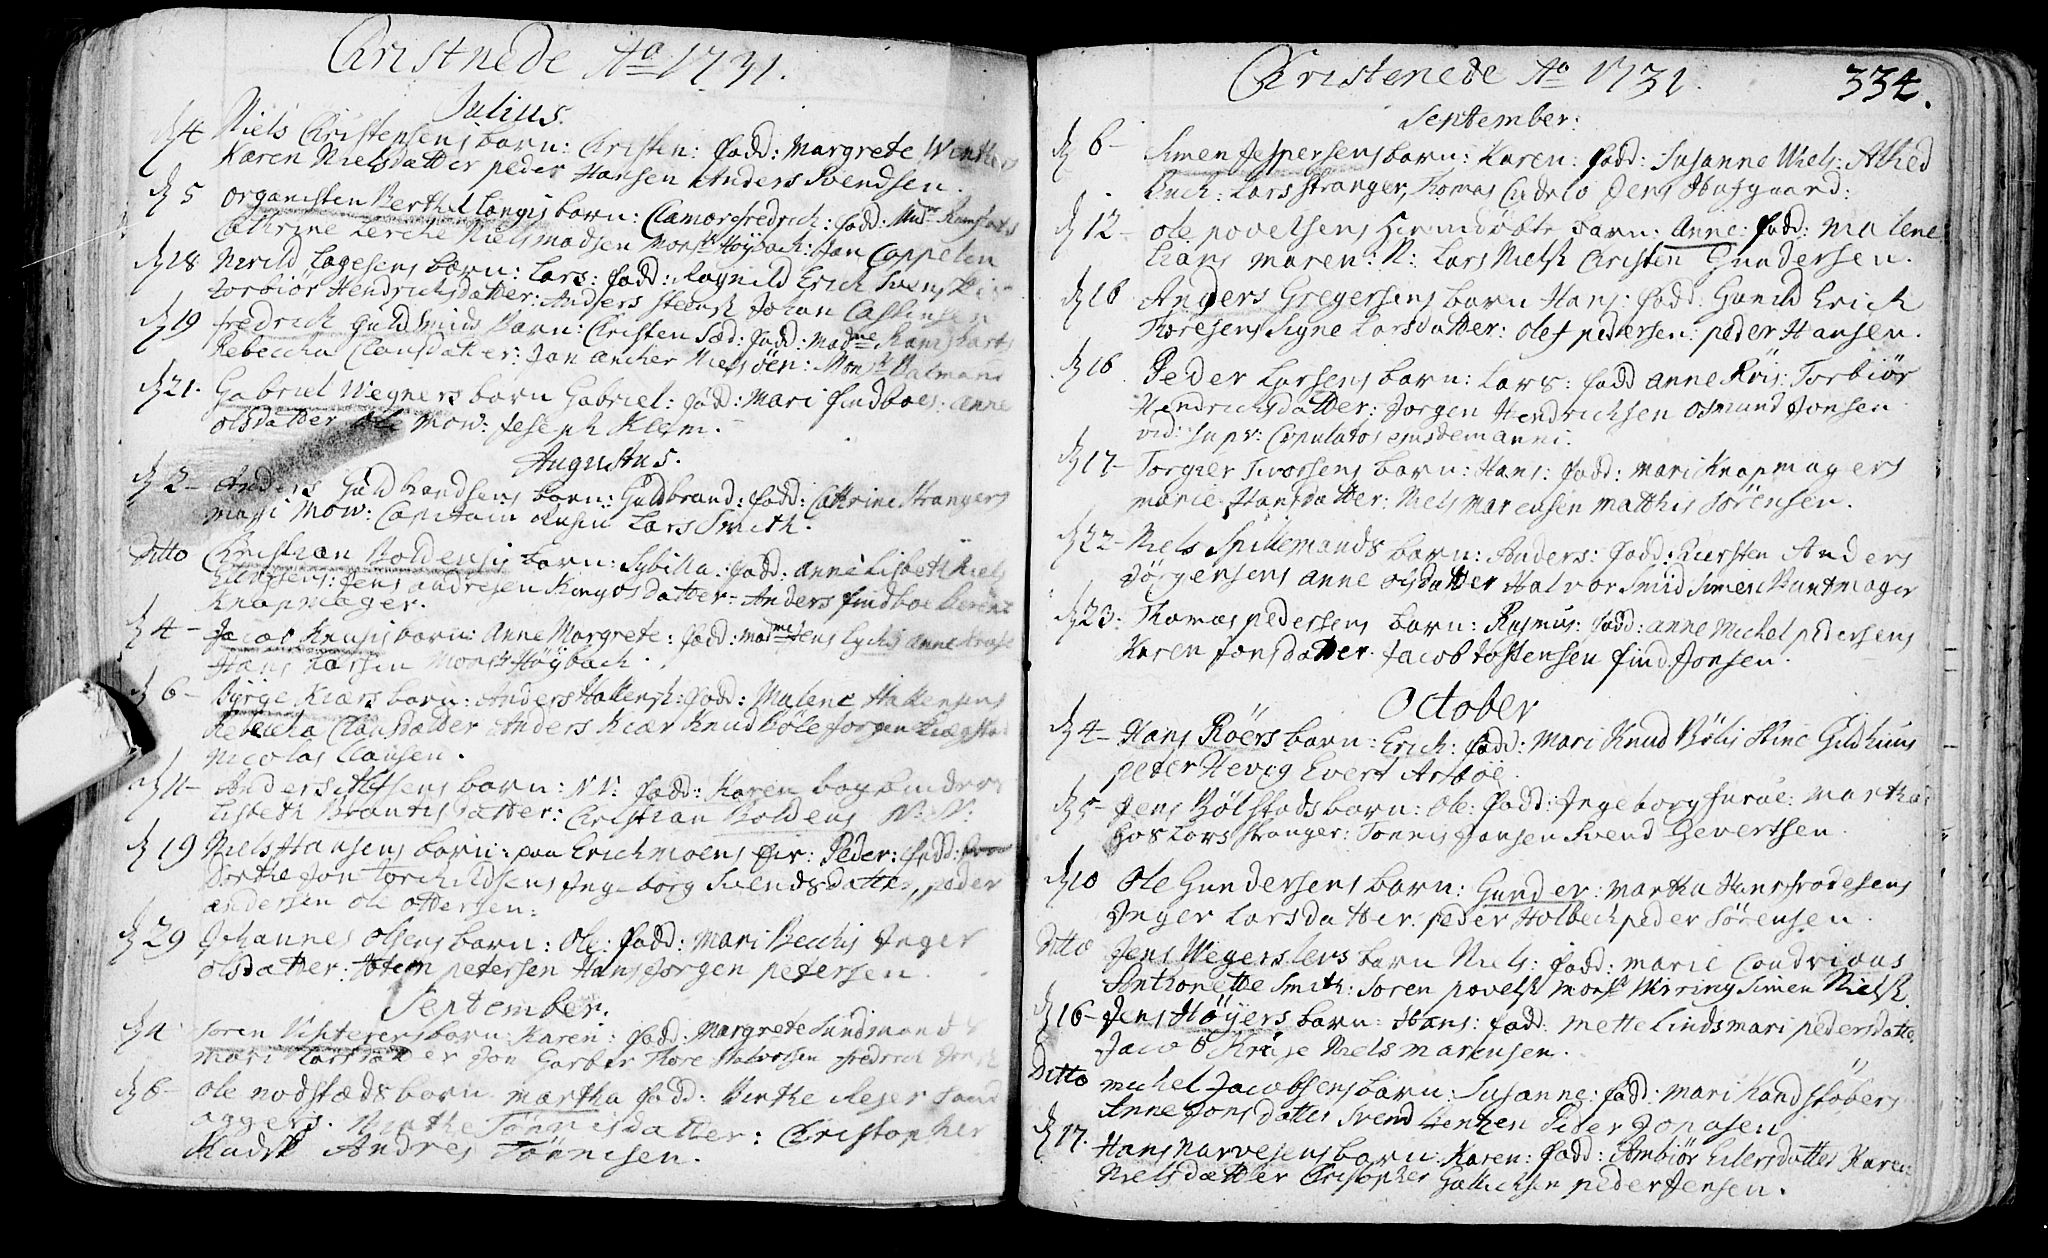 Christnede Ao 1731.
Julius.
d 4 Niels Christensens barn: Christen: fadd: Margrete Winthers
Karen Nielsdatter peder Hansen Anders Svendsen.
d 5 organisten Berthel Langis barn: Clamor fredrich: fadd:
Cathrine Lerche Niels madsen Monsr Høybach: Jan Coppelen
d 18 Lagesens barn: Lars: fadd: Ragnild Erich
torbiør Hendrichsdatter: Anders Johan
d 19 fredrich Guldsmids barn: Christen Sæd: fadd: Madme Ramsharts
Rebeccha Clausdatter: Jan ancher Nielsøen: Monsr
d 21. Gabriel Wegners barn Gabriel: fadd: Mari findboes: anne
olsdatter ole Mow: Joseph Klem.
Augustus.
d 2 Anders Guldbrandsens barn: Guldbrand: fadd: Cathrine Strangers
Mow: Capitain Lars Smith.
Ditto Christian Boldensis barn: Sybilla: fadd: anne Lisbeth Niels
Jens andresen Kongosdatter Anders findboe
Knapmager.
d 4 Jacob Krusis barn: Anne Margrete: fadd: madme Jens Lychs anne Kruse
Hans Larsen Monsr Høybach.
d 6 Børge Kiærs barn: Anders Hallensk: fadd: Malene Hallensens
Rebeccha Clausdatter Anders Kiær Knud Bøle Jorgen
Nicolas Clausen.
d 11 Anders Alfsens barn: NN: fadd: Karen bogbinders
Lisbeth Brantisdatter: Christian Boldens N: N:
d 19 Niels Hansens barn: paa Erichmoens Eir: Peder: fadd:
Dorthe Jon Torchildsens Ingeborg Svendsdatter,, peder
andersen ole ottersen:
d 29 Johannes olsens barn: Ole: fadd: Mari Bechis Inger
olsdatter: petersen Hans Jørgen petersen
September.
d 4 Soren barn: Karen: fadd: Margrete Sundmands
mari Larsdatter Jon Garber Thore Halvorsen fredrich
d 6 ole nodstads barn martha fadd: Birthe Reger
aggers. Birthe Tønnisdatter: Christopher
Andres Tønnesen.
Christenede Ao 1731.
334.
September:
d 6 Simen Jespersens barn: Karen: fadd: Susanne Niels: Alhed
Buch: Lars Stranger, Thomas Cudrio Jens Hofgaard:
d 12 ole povelsens hiemdøbte barn: Anne: fadd: Malene
Hans maren: N: Lars Nielsk Christen Gundersen.
d 16 Anders Gregersens barn Hans: fadd: Gunild Erich
Thoresens Signe Larsdatter: olef pedersen: peder Hansen.
d 16 Peder Larsens barn: Lars: fadd anne Røis: Torbiør
Hendrichsdatter: Jorgen Hendrichsen osmund Jonsen
vid: supr: Copulatos ejusdem anni.
d 17 Torgier Ivorsens barn: Hans: fadd: mari Knapmagers
marie Hansdatter: Niels marensen matthis sørensen.
d 22 Niels Spillemands barn: Anders: fadd: Kiersten Anders
Jørgensens anne olsdatter Halvor Smid Simen Buntmager
d 23: Thomas pedersens barn: Rasmus: fadd: anne Michel pedersens
Karen Jonsdatter. Jacob tostensen find Jonsen.
October
d 4 Hans Røers barn: Erich: fadd: Mari Knud Bølis Stine Gildhuus
peter Hevig Evert Asbøe.
d 5 Jens Bølstads barn: ole: fadd: Ingeborg furae: Martha
hos Lars Stranger: Tønnis Jansen Svend Gevertsen.
d 10 Ole Gundersens barn: Gunder: martha Hans frodesens
Inger Larsdatter: peder Holbech peder sørensen.
Ditto Jens Wegerslevs barn Niels: fadd: marie Condrious
Anthonette Smith: soren povelsk Monsr Wiring Simen Nielsk
d 16 Jens Høyers barn: Hans: fadd: mette Linds mari pedersdatte
Jacob Kruse Niels marensen.
Ditto michel Jacobsens barn: Susanne: fadd: mari Handskobers
Anne Jonsdatter Svend Lentzen Peder Jopasen
d 17. Hans Narvesens barn: Karen: fadd: Ambiør Eilersdatter Karen
Nielsdatter Christopher Gullichsen peder Jensen.